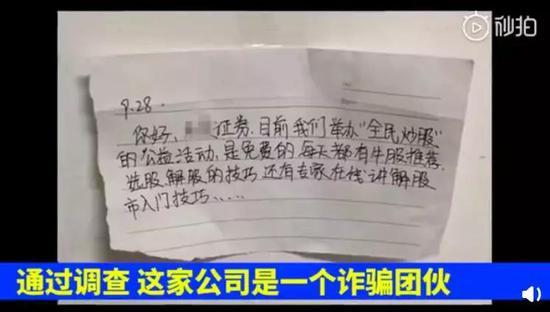 秒拍
9.28.
你好,证券.目前我们举办"全民炒股"
的公益活动,是免费的.每天都有牛股推荐.
选股.解股的技巧.还有专家在线讲解股
市入门技巧……
通过调查 这家公司是一个诈骗团伙